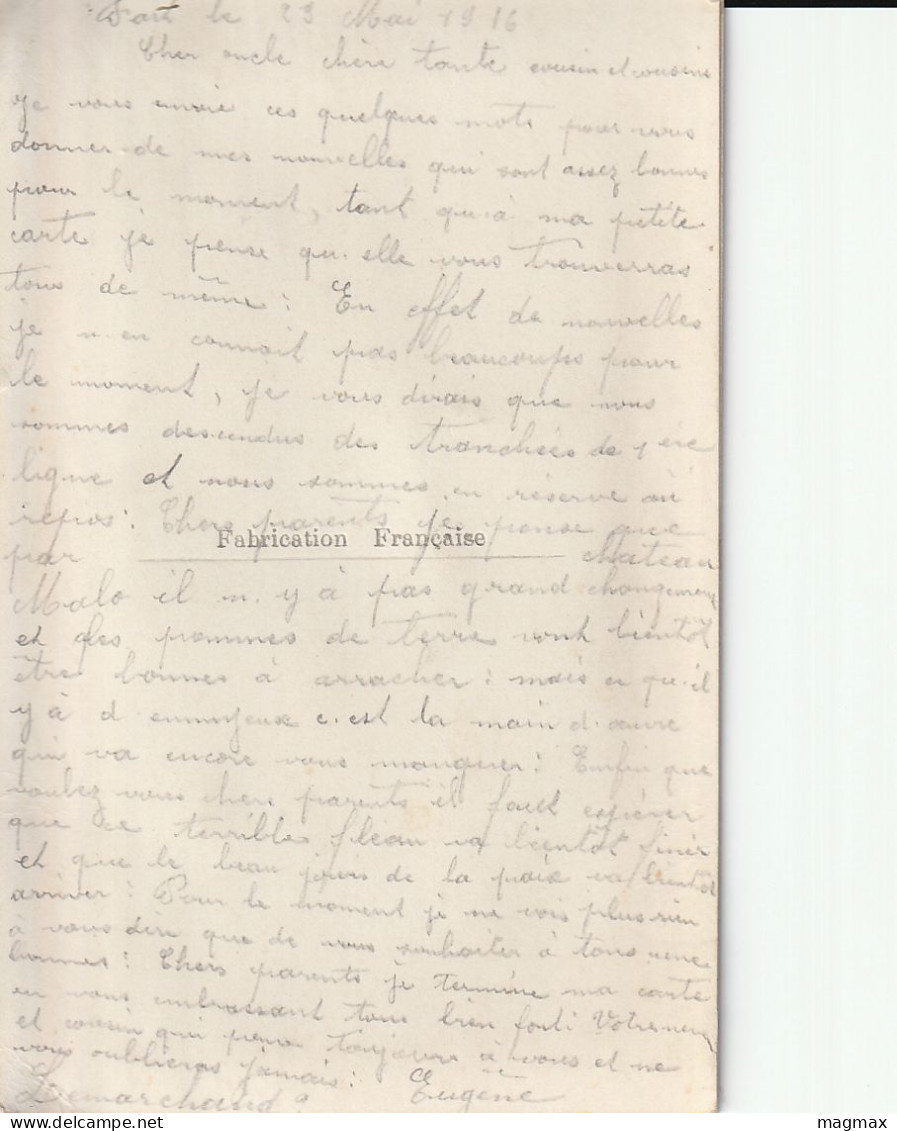 le 29 Mai 1916
Cher oncle chère tante cousin et cousine
je vous envoie ces quelques mots pour vous
donner de mes nouvelles qui sont assez bonnes
pour le moment, tant qu'à ma petite
carte je pense qu'elle vous trouverras
tous de même : En effet de nouvelles
je n'en connait pas beaucoups pour
le moment, je vous dirais que nous
sommes descendus des tranchées de 1ère
ligne et nous sommes en réserve au
repos : Chers parents je pense que
Fabrication Française
par Chateau
Malo il n'y à pas grand changement
et les pommes de terre vont bientôt
être bonnes à arracher : mais ce qu'il
y à d'ennuyeux c'est la main d'œuvre
qui va encore vous manquer : Enfin que
voulez vous chers parents il faut espérer
que ce terrible fléau va bientôt finir
et que le beau jours de la paix va bientôt
arriver : Pour le moment je ne vois plus rien
à vous dire que de vous souhaiter à tous une
bonnes : Chers parents je termine ma carte
en vous embrassant tous bien fort : Votre neveu
et cousin qui pense toujours à vous et ne
vous oublieras jamais :
Lemarchand Eugène
magmax